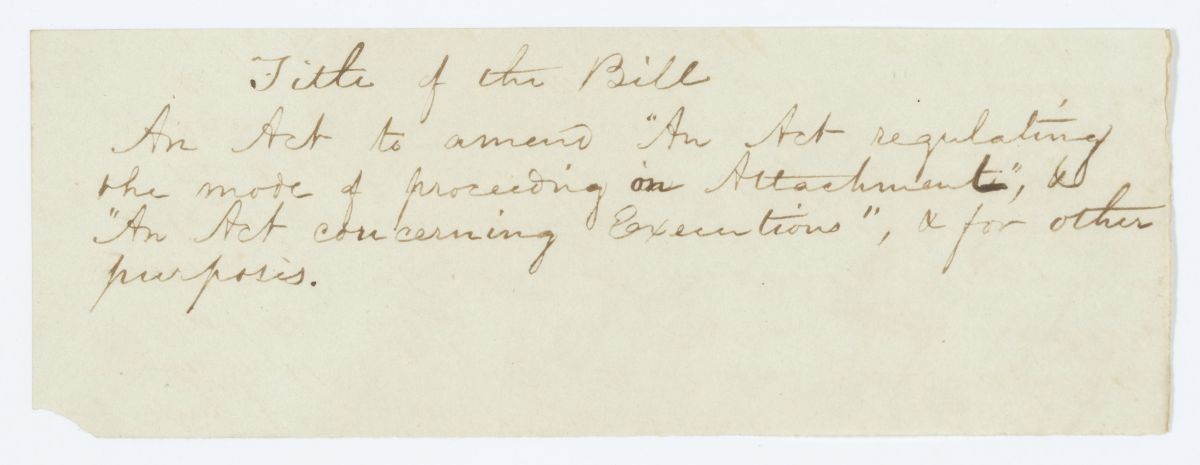 Title of the Bill
An Act to amend "An Act regulating
the mode of proceeding in Attachment", &
"An Act concerning Executions", & for other
purposes.